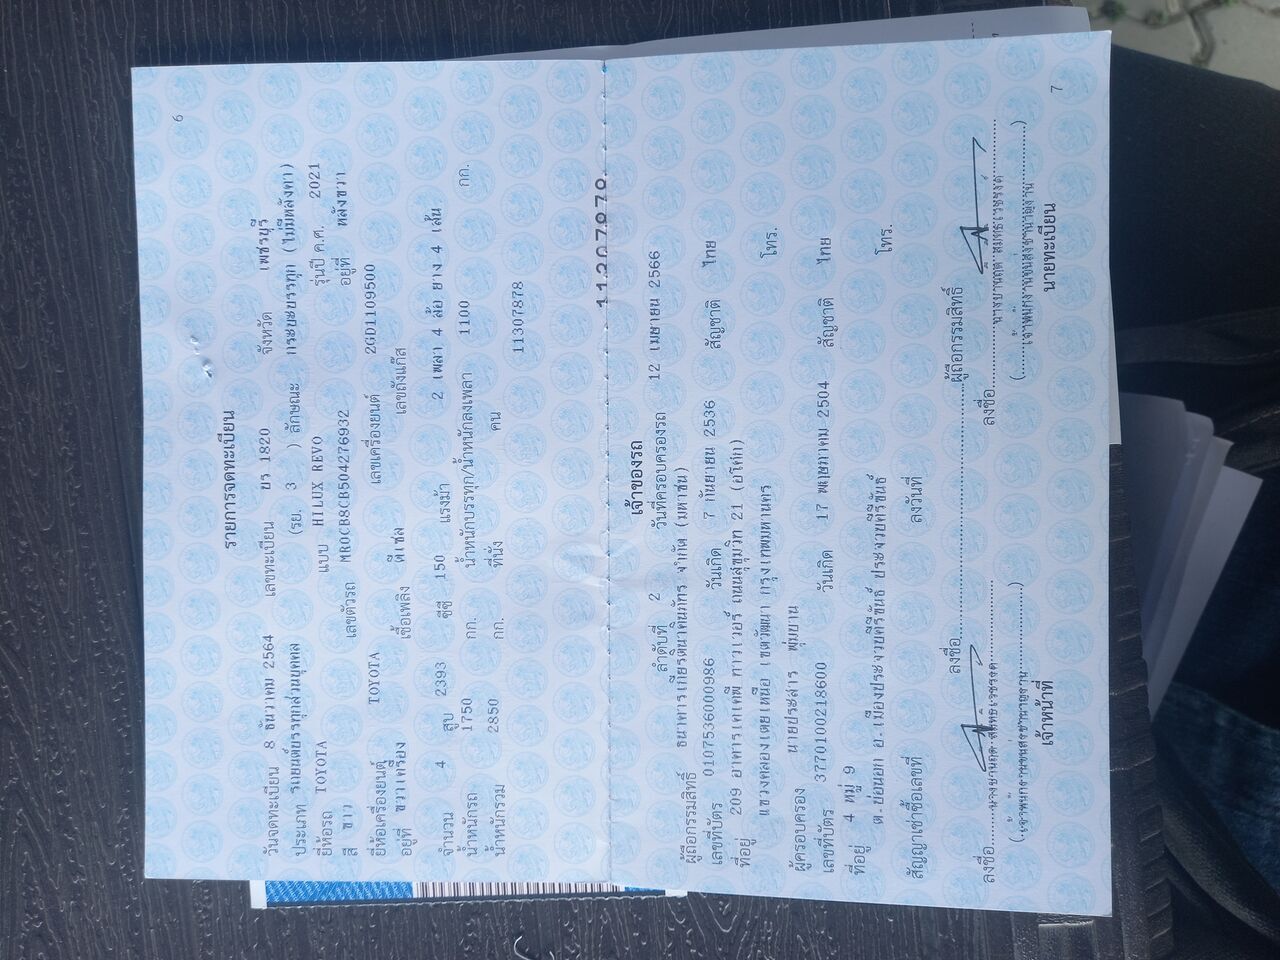 6
รายการจดทะเบียน
วันจดทะเบียน 8 ธันวาคม 2564 เลขทะเบียน ยร 1820 จังหวัด เพชรบุรี
ประเภท รถยนต์บรรทุกส่วนบุคคล (รย. 3 ) ลักษณะ กระบะบรรทุก (ไม่มีหลังคา)
ยี่ห้อรถ TOYOTA แบบ HILUX REVO รุ่นปี ค.ศ. 2021
สี ขาว เลขตัวรถ MR0CB8CB504276932 อยู่ที่ หลังขวา
ยี่ห้อเครื่องยนต์ TOYOTA เลขเครื่องยนต์ 2GD1109500
อยู่ที่ ขวาเครื่อง เชื้อเพลิง ดีเซล เลขถังแก๊ส
จำนวน 4 สูบ 2393 ซีซี 150 แรงม้า 2 เพลา 4 ล้อ ยาง 4 เส้น
น้ำหนักรถ 1750 กก. น้ำหนักบรรทุก/น้ำหนักลงเพลา 1100 กก.
น้ำหนักรวม 2850 กก. ที่นั่ง คน
11307878
เจ้าของรถ
ลำดับที่ 2 วันที่ครอบครองรถ 12 เมษายน 2566
ผู้ถือกรรมสิทธิ์ ธนาคารเกียรตินาคินภัทร จำกัด (มหาชน)
เลขที่บัตร 0107536000986 วันเกิด 7 กันยายน 2536 สัญชาติ ไทย
ที่อยู่ 209 อาคารเคเคพี ทาวเวอร์ ถนนสุขุมวิท 21 (อโศก)
แขวงคลองเตยเหนือ เขตวัฒนา กรุงเทพมหานคร โทร.
ผู้ครอบครอง นายประสาร พุ่มยาน
เลขที่บัตร 3770100218600 วันเกิด 17 พฤษภาคม 2504 สัญชาติ ไทย
ที่อยู่ 4 หมู่ 9
ต.บ่อนอก อ.เมืองประจวบคีรีขันธ์ ประจวบคีรีขันธ์ โทร.
สัญญาเช่าซื้อเลขที่ ลงวันที่
ลงชื่อ ผู้ถือกรรมสิทธิ์
ลงชื่อ ลงชื่อ
เจ้าหน้าที่ นายทะเบียน
7